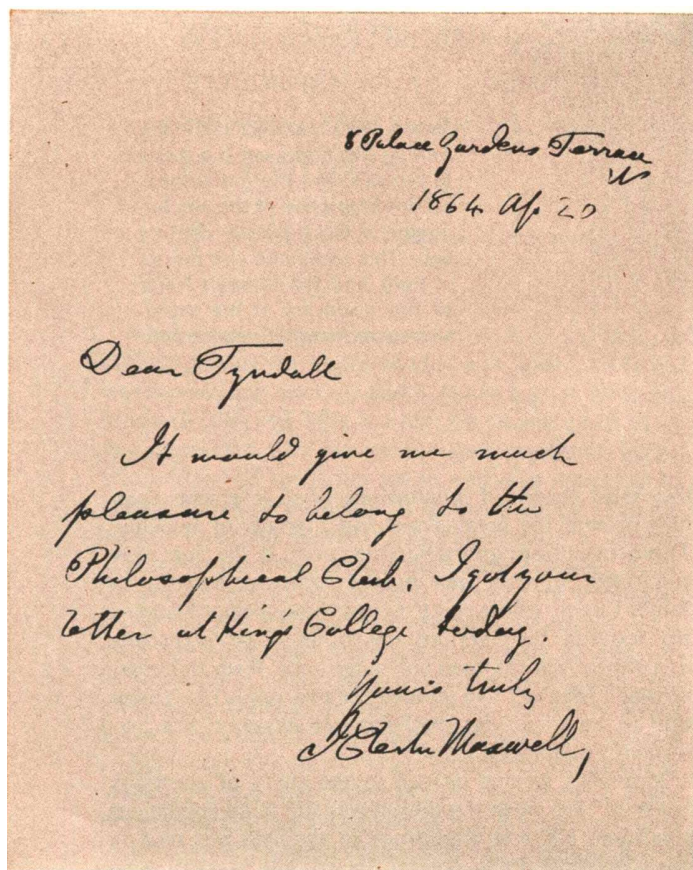 8 Palace Gardens Terrace
W
1864 Ap 20
Dear Tyndall
It would give me much
pleasure to belong to the
Philosophical Club. I got your
letter at King's College today.
Yours truly
J Clerk Maxwell,